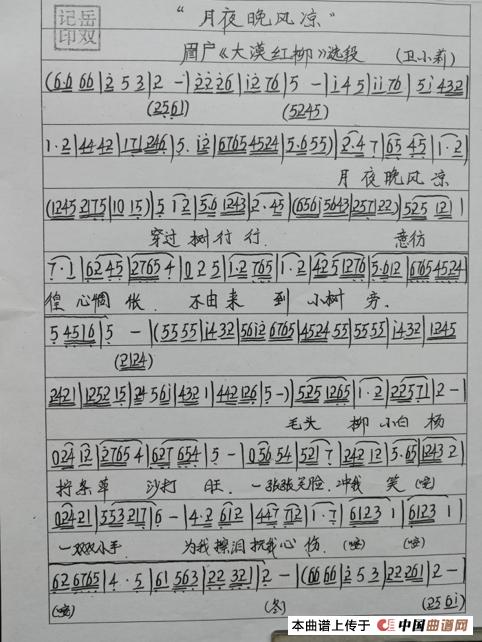 岳双
记印
"月夜晚风凉"
眉户《大漠红柳》选段 (卫小莉)
(6·6 66|2 5 3|2 -|22 26|12 76|5 -|1 4 5|11 76|51 432|
(2561) (5245)
月夜晚风凉
(1245 2175|10 15)|5 12|5·6 1243|2·45|(6561 5643|2571 22)|525 121|
穿过 树行行. 意彷
7·1|6245|2765 4|0 2 5|1·2 765|1·2|425 1276|5·612|6765 4524|
徨 心惆 怅. 不由来 到 小树 旁.
5 4516|5 -|(55 55|1432|5612 6765|4524 55|55 55|1432|1245
(2124)
2421|1252 15|24 561|432 1|442 126|5 -)|525 1265|1·2|22571|2 -|
毛头 柳 小白 杨
024 12|2765 4|627 654|5 -|0 56 54|521 7|242 12|5·65|1243 2|
沙打 旺. 一张张笑脸. 冲我 笑
02421|553 217|6 -|4·2 612|447 712|1·7|6123 1|6123 1|
一双双小手. 为我擦泪抚我心 伤.
626765|4·5|61 563|22 321|2 -|(66 66|2 5 3|22 261|2 -|
(冬) (2561)
本曲谱上传于 中国曲谱网